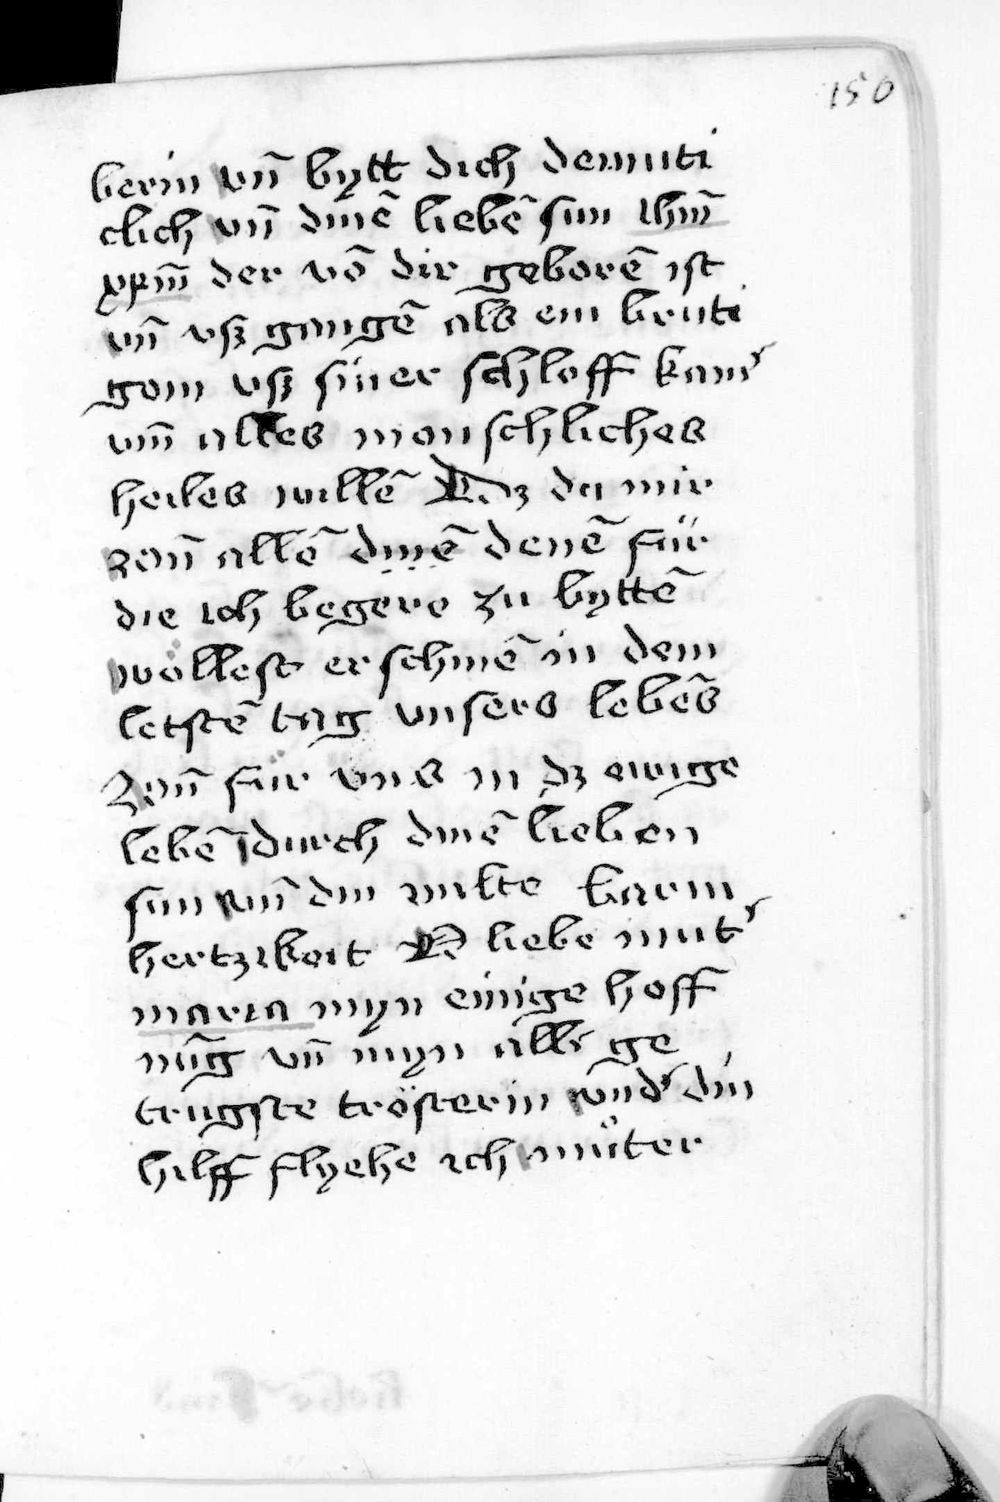 150
berin vn̄ bytt dich demuti
clich vn̄ dinē liebē sun ihm̄
xp̄m der vō dir geborē ist
vn̄ vsz gangē als ein bruti
gom vsz siner schloff kam̄
vm̄ alles monschliches
heiles willē Dz du mir
vn̄ allē denē für
die ich begere zu byttē
wöllest erschinē in dem
letstē tag vnsers lebēs
für vns in dz ewige
lebē durch dinē lieben
sun vn̄ din milte barm
hertzikeit O liebe mut̄
maria myn einige hoff
nūg vn̄ myn aller ge
trugste trösterin vnd̄ din
hilff flyehe ich muͦter